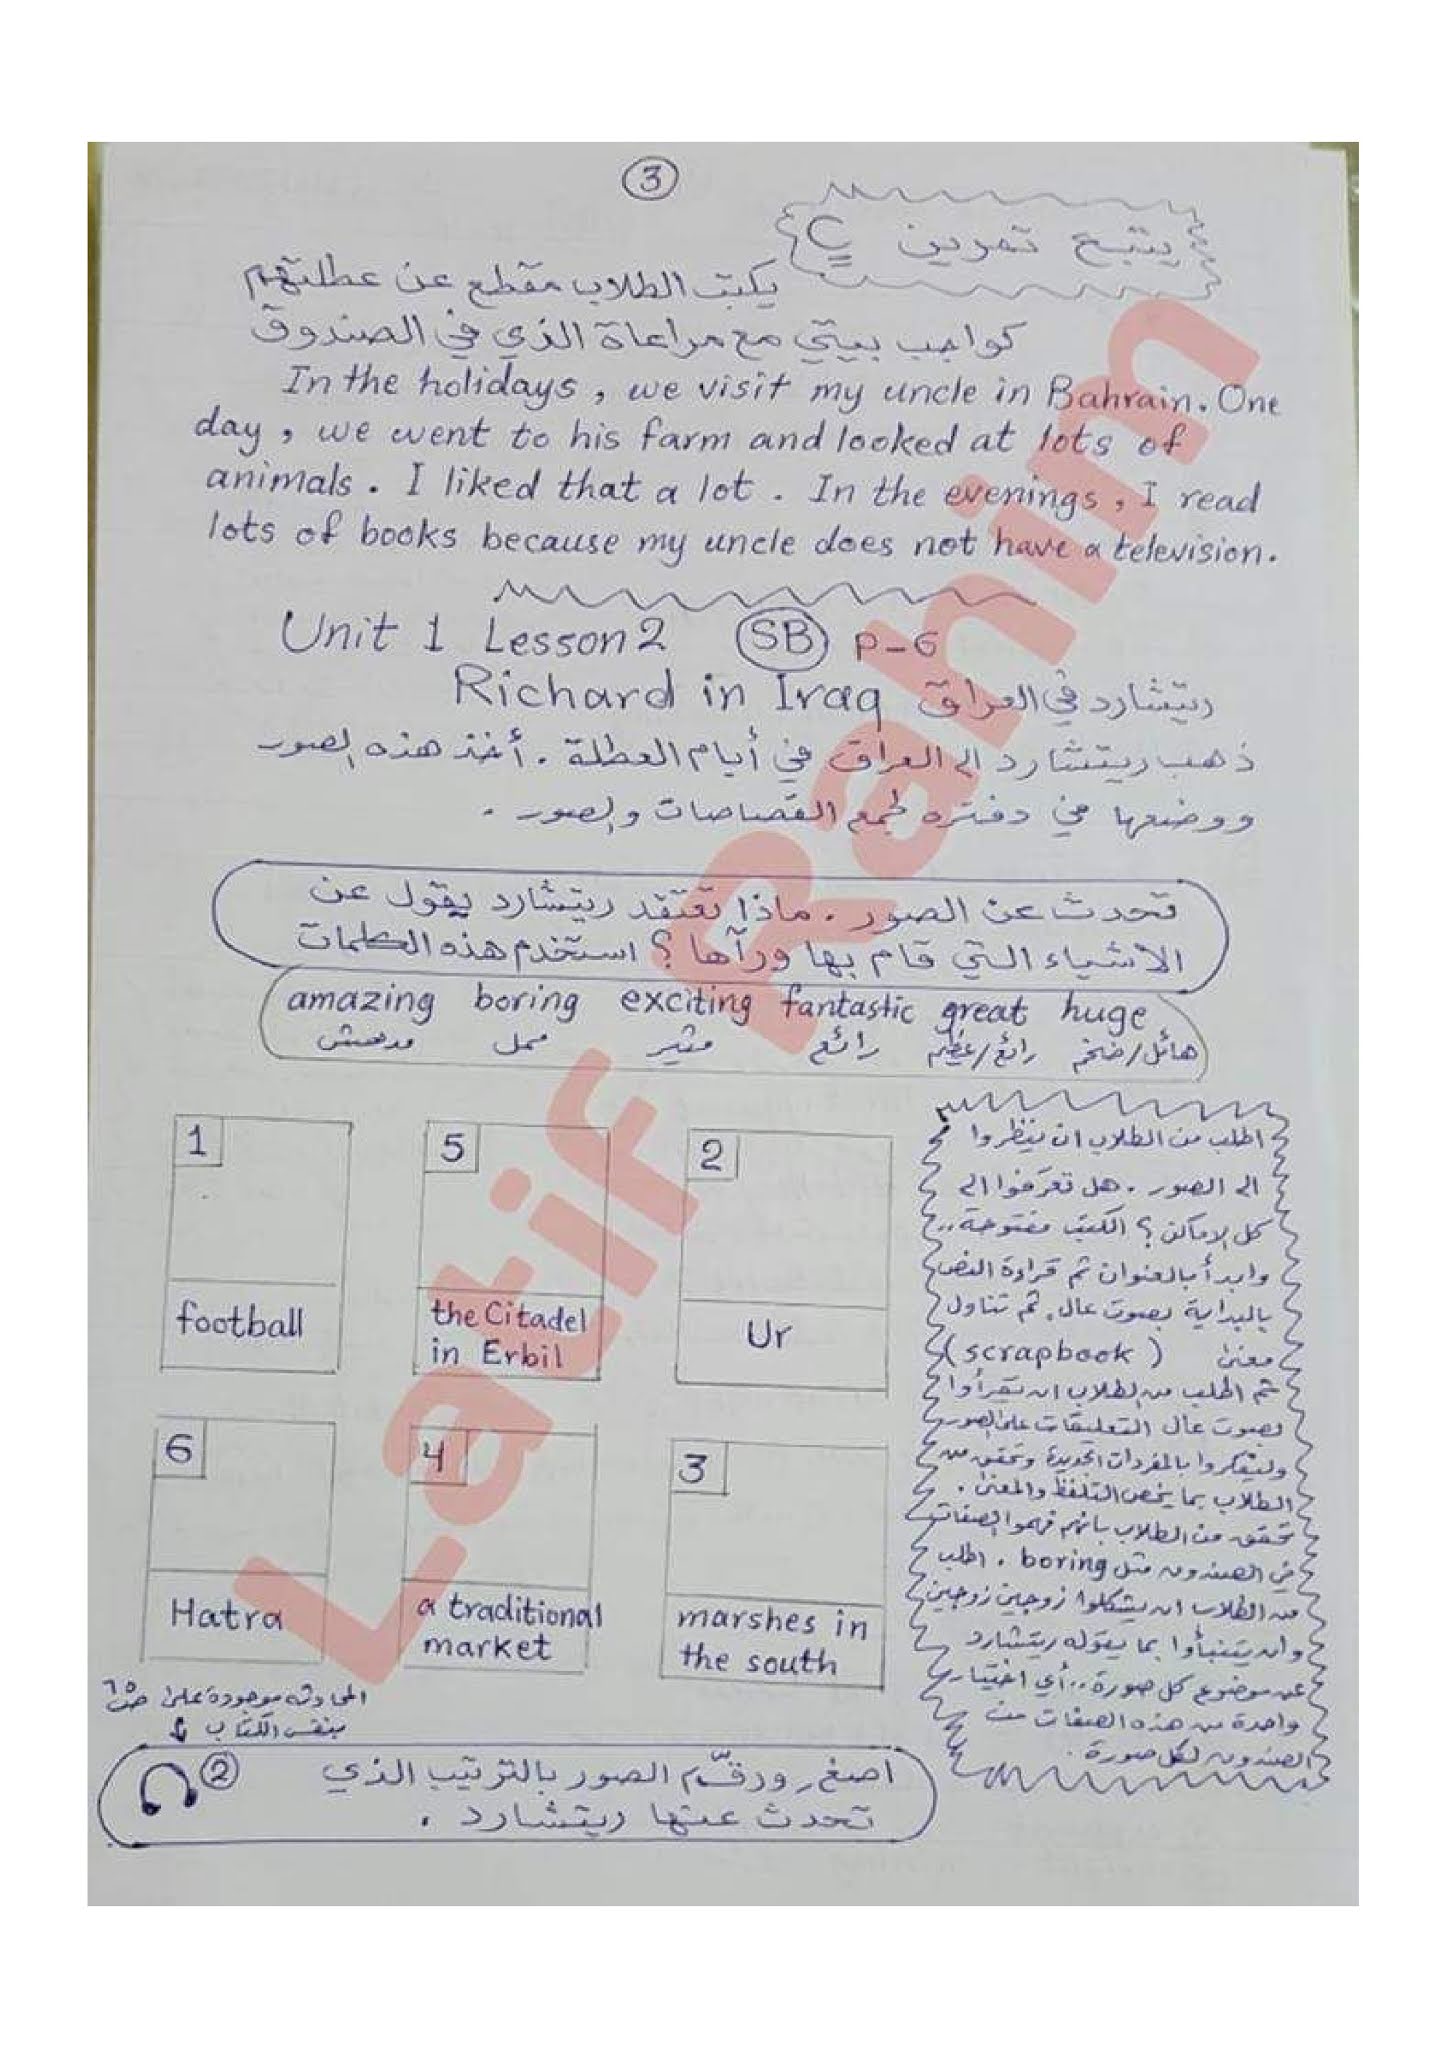 3
يتبع تمرين C
يكتب الطلاب مقطع عن عطلتهم
كواجب بيتي مع مراعاة الذي في الصندوق
In the holidays, we visit my uncle in Bahrain. One
day, we went to his farm and looked at lots of
animals. I liked that a lot. In the evenings, I read
lots of books because my uncle does not have a television.
Unit 1 Lesson 2 SB P-6
Richard in Iraq ريتشارد في العراق
ذهب ريتشارد الى العراق في أيام العطلة. أخذ هذه الصور
ووضعها في دفتره لجمع القصاصات والصور.
تحدث عن الصور. ماذا تعتقد ريتشارد يقول عن
الاشياء التي قام بها ورآها؟ استخدم هذه الكلمات
amazing boring exciting fantastic great huge
مدهش ممل مثير رائع رائع/عظيم هائل/ضخم
1
football
5
the Citadel
in Erbil
2
Ur
6
Hatra
4
a traditional
market
3
marshes in
the south
اطلب من الطلاب ان ينظروا
الى الصور. هل تعرفوا الى
كل الاماكن؟ الكتب مفتوحة..
وابدأ بالعنوان ثم قراءة النص
بالبداية بصوت عال. ثم تناول
معنى (scrapbook)
ثم اطلب من الطلاب ان يقرأوا
بصوت عال التعليقات على الصور
وليفكروا بالمفردات الجديدة وتحقق من
الطلاب بما يخص التلفظ والمعنى.
تحقق من الطلاب بانهم فهموا الصفات
في الصندوق مثل boring. اطلب
من الطلاب ان يشكلوا زوجين زوجين
وان يتنبأوا بما يقوله ريتشارد
عن موضوع كل صورة.. أي اختيار
واحدة من هذه الصفات من
الصندوق لكل صورة.
المحادثة موجودة على ص٦٥
بنفس الكتاب
2 اصغِ ورقّم الصور بالترتيب الذي
تحدث عنها ريتشارد.
Latif Rahim